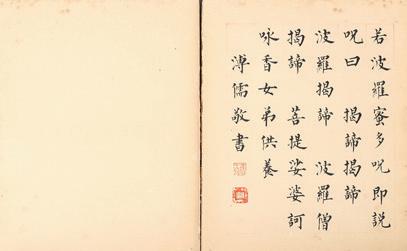 若波羅蜜多呪即説
呪曰 揭諦揭諦
波羅揭諦 波羅僧
揭諦 菩提娑婆訶
咏香女弟供養
溥儒敬書